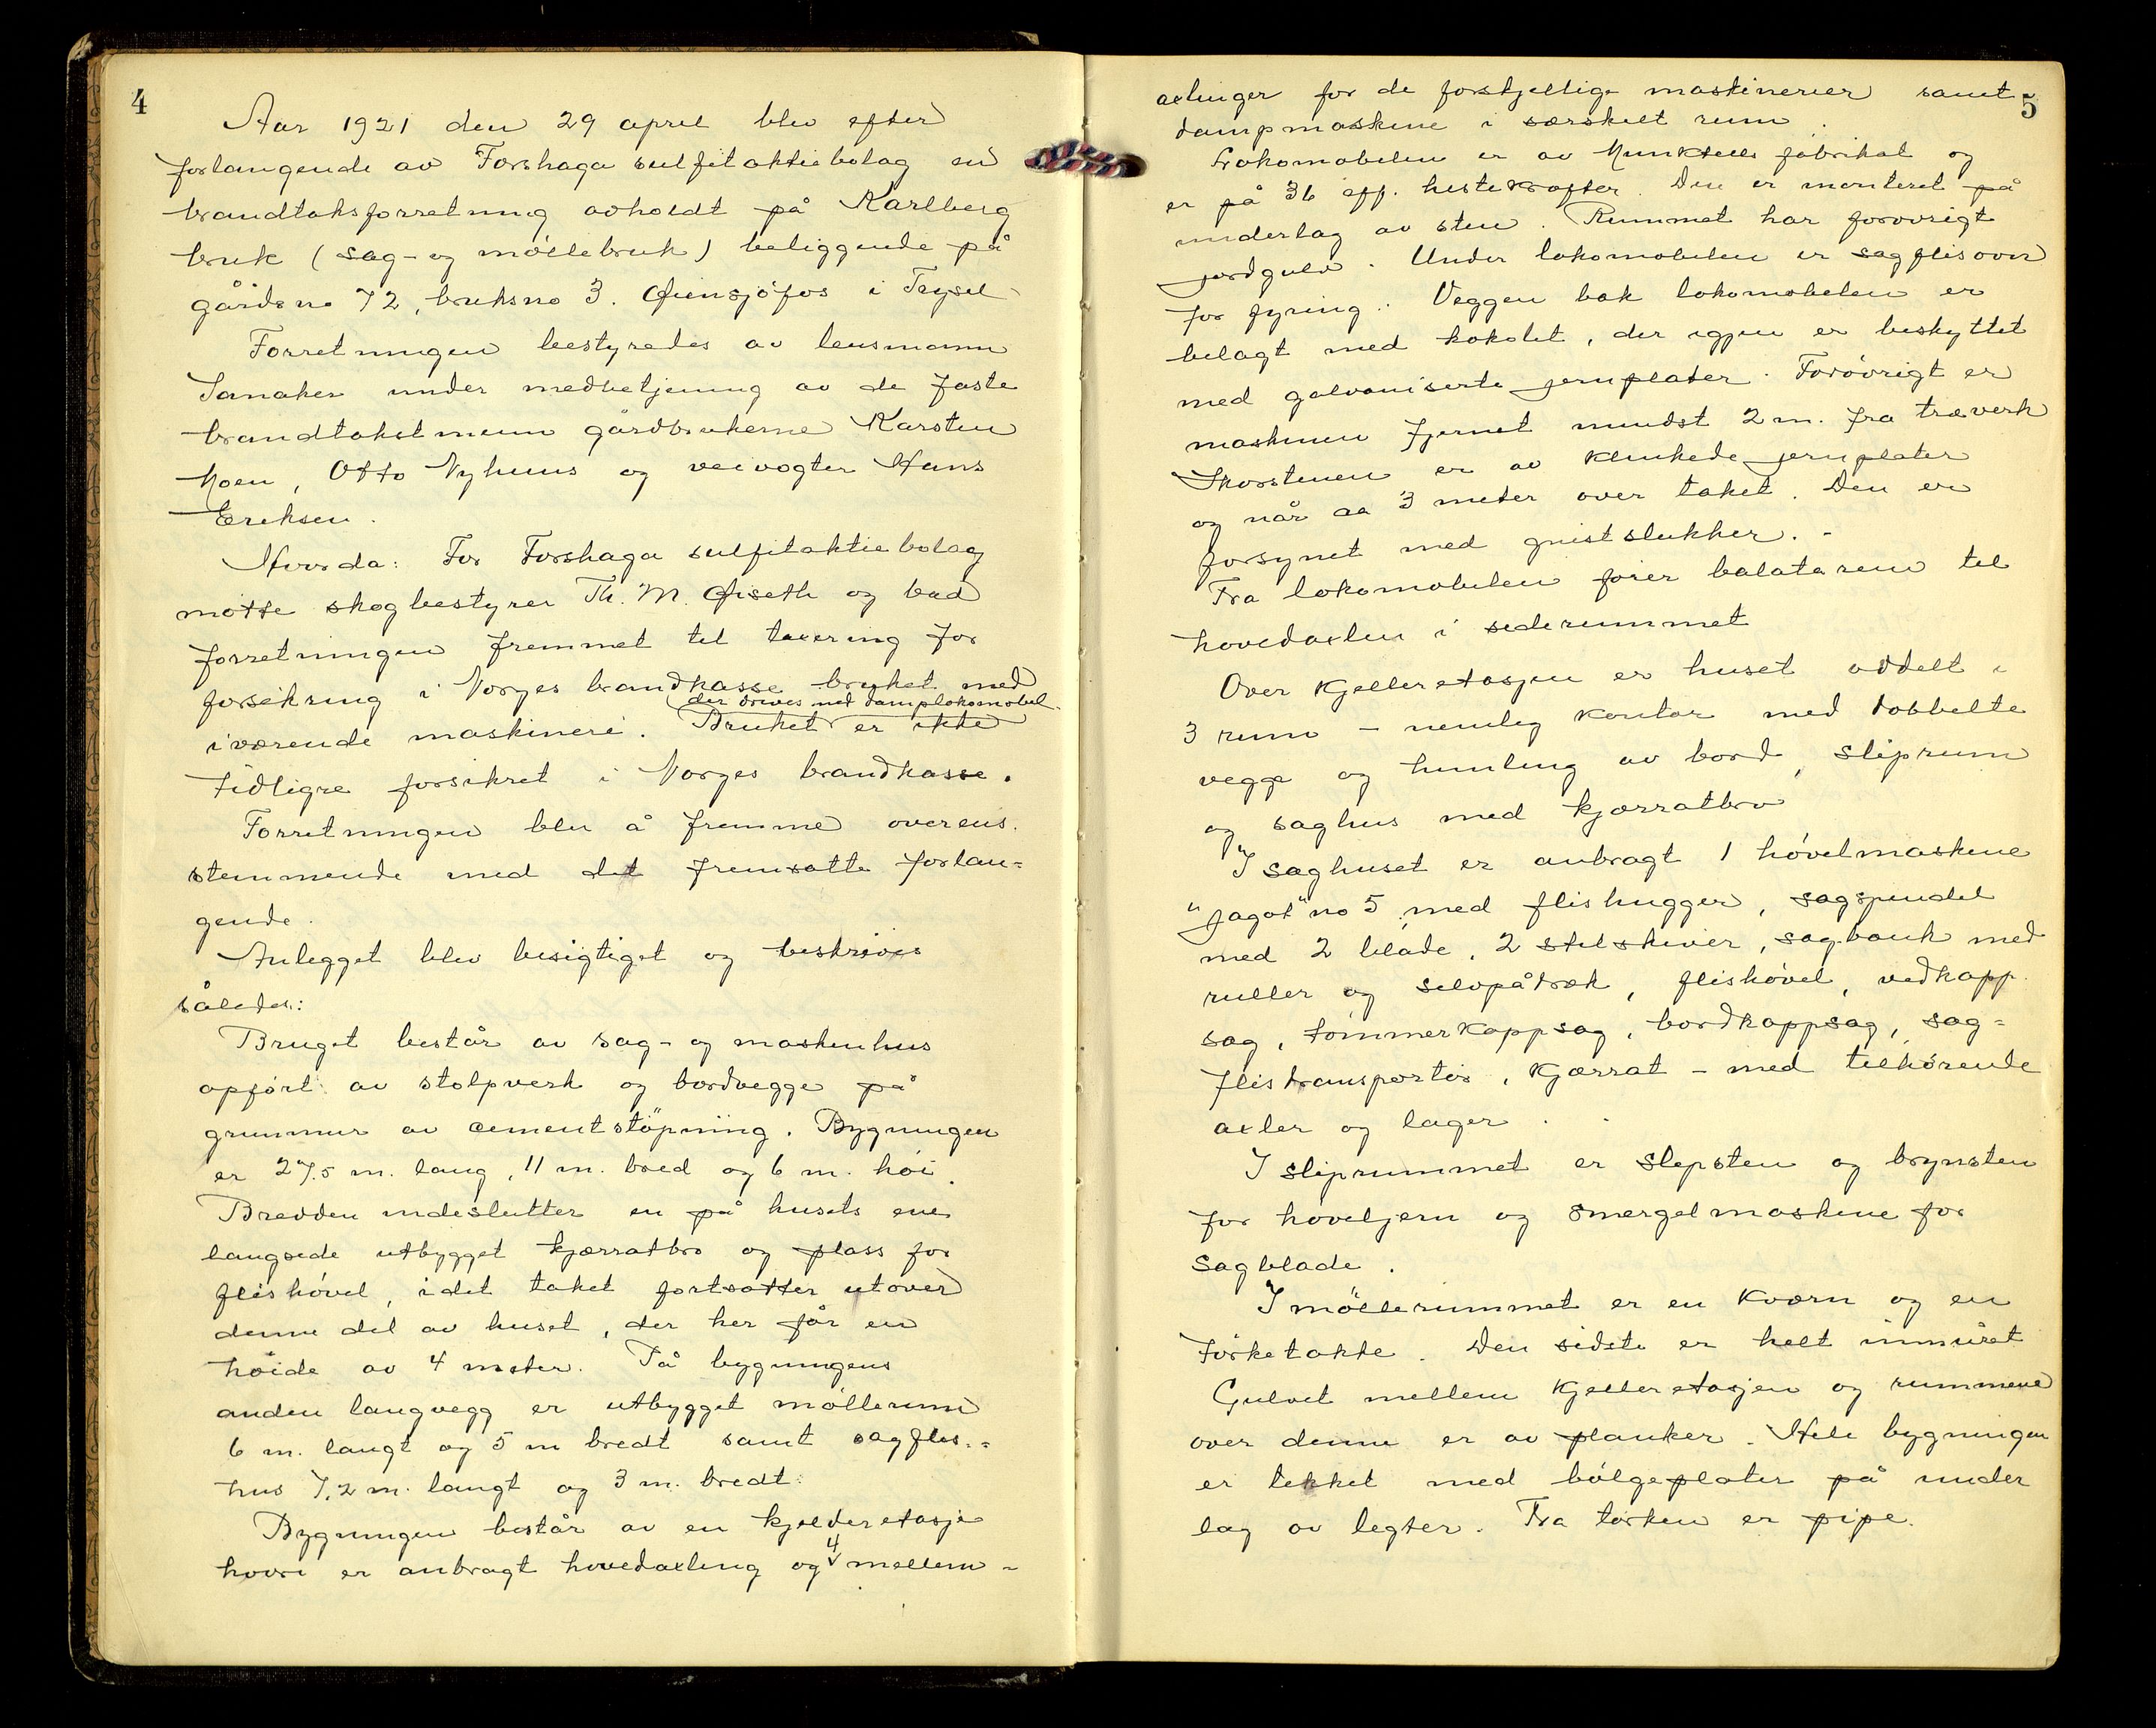 4
Aar 1921 den 29 april blev efter
forlangende av Forshaga sulfitaktiebolag en
brandtaksforretning avholdt på Karlberg
bruk (sag- og möllebruk) beliggende på
gårdsno 72, bruksno 3. Øiensjöfos i Trysil
Forretningen bestyredes av lensmann
Sanaker under medbetjening av de faste
brandtakstmenn gårdbrukerne Karsten
Moen, Otto Nyhuus og veivogter Hans
Eriksen.
Hvorda: For Forshaga sulfitaktiebolag
møtte skogbestyrer Th. M. Øiseth og bad
forretningen fremmet til taxering for
forsikring i Norges brandkasse bruket med
der drives med damplokomobel
iværende maskineri. Bruket er ikke
tidligre forsikret i Norges brandkasse.
Forretningen blev å fremme overens-
stemmende med det fremsatte forlan-
gende.
Anlegget blev besigtiget og beskrives
således:
Bruget består av sag- og maskinhus
opført av stolpverk og bordvegge på
grunmur av cementstöpning. Bygningen
er 27.5 m. lang, 11 m. bred og 6 m. höi.
Bredden indeslutter en på husets ene
langside utbygget kjærratbro og plass for
flishövel, idet taket fortsætter utover
denne del av huset, der her får en
höide av 4 meter. På bygningens
anden langvegg er utbygget möllerum
6 m. langt og 5 m bredt samt sagflis-
hus 7,2 m. langt og 3 m. bredt.
Bygningen består av en kjelderetasje
hvori er anbragt hovedaxling og 4 mellem-
5
axlinger for de forskjellige maskinerier samt
dampmaskine i særskilt rum.
Lokomobelen er av Munktells fabrikat og
er på 36 eff. hestekræfter. Den er monteret på
underlag av sten. Rummet har forövrigt
jordgulv. Under lokomobelen er sagflisovn
for fyring. Veggen bak lokomobelen er
belagt med kokolit, der igjen er beskyttet
med galvaniserte jernplater. Forövrigt er
maskinen fjernet mindst 2 m. fra træverk
Skorstenen er av klinkede jernplater
og når ca 3 meter over taket. Den er
forsynet med gnistslukker.
Fra lokomobelen förer balatarem til
hovedaxlen i siderummet
Over kjelleretasjen er huset avdelt i
3 rum - nemlig kontor med dobbelte
vegge og himling av bord, sliprum
og saghus med kjærratbro
I saghuset er anbragt 1 hövelmaskine
"Jagot" no 5, med flishugger, sagspindel
med 2 blade, 2 stilskiver, sagbænk med
ruller og selvpåtræk, flishövel, vedkapp
sag, tömmerkappsag, bordkappsag, sag-
flistransportör, kjærrat - med tilhörende
axler og lager.
I sliprummet er slepsten og brynsten
for höveljern og smergelmaskine for
sagblade.
I möllerummet er en kværn og en
törketakke. Den sidste er helt innmuret
Gulvet mellem kjelleretasjen og rummene
over denne er av planker. Hele bygningen
er tekket med bölgeplater på under
lag av legter. Fra törken er pipe.